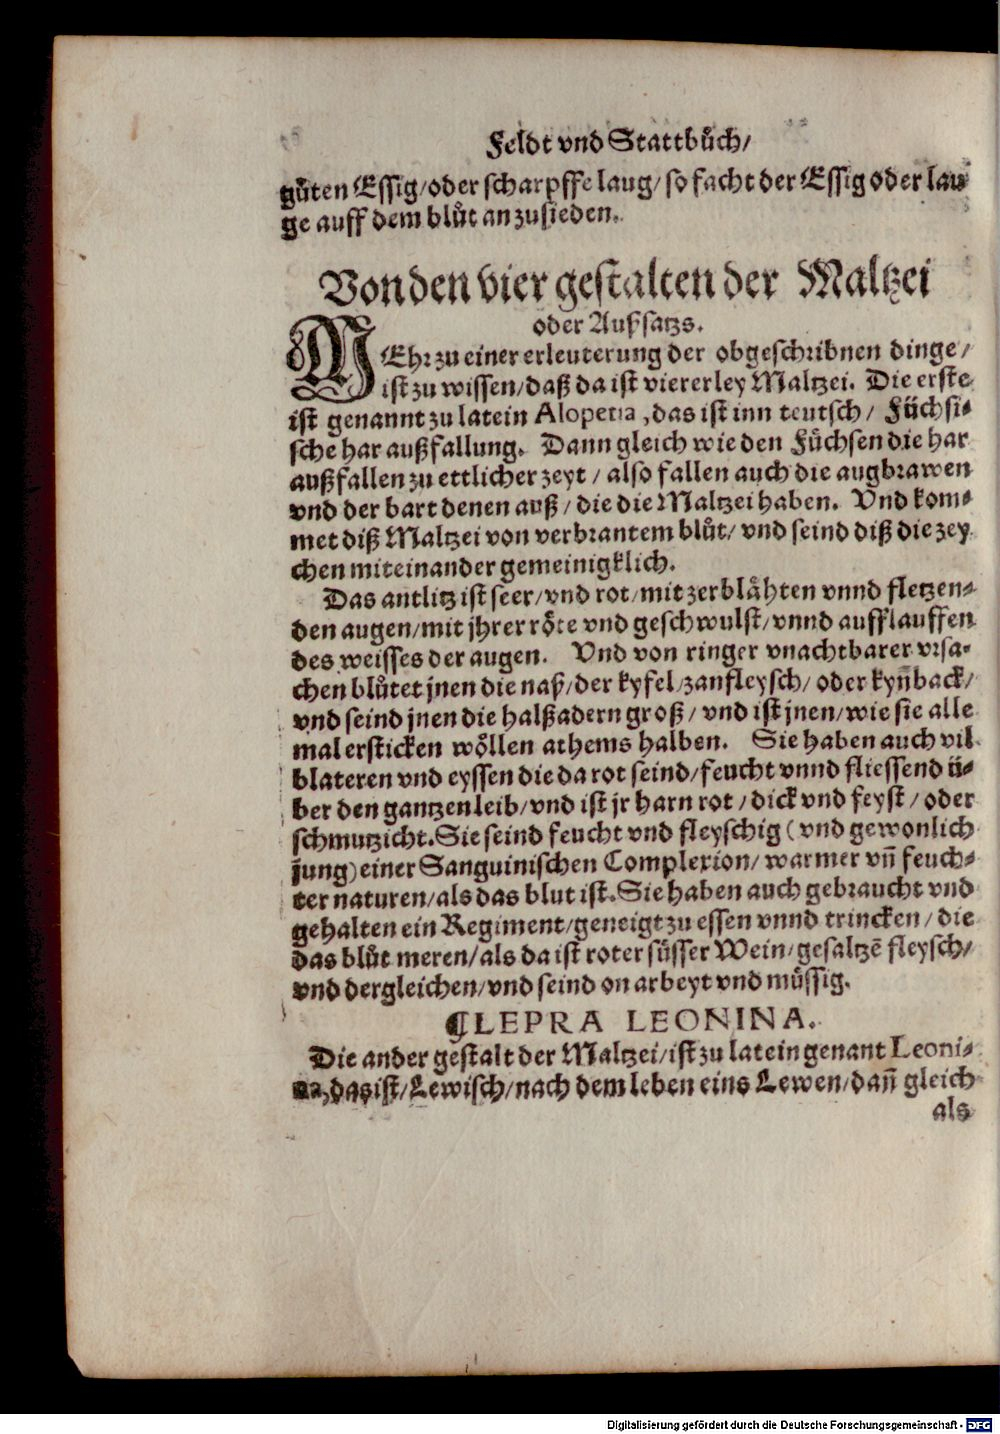 Feldt vnd Stattbuͦch/
guͦten Essig/oder scharpffe laug/ so facht der Essig oder lau
ge auff dem bluͦt an zusieden.
Von den vier gestalten der Maltzei
oder Außsatzs.
MEhr zu einer erleuterung der obgeschribnen dinge/
ist zu wissen/daß da ist viererley Maltzei. Die erste
ist genannt zu latein Alopetia, das ist inn teutsch/ Füchsi⸗
sche har außfallung. Dann gleich wie den Füchsen die har
außfallen zu ettlicher zeyt / also fallen auch die augbrawen
vnd der bart denen auß / die die Maltzei haben. Vnd kom⸗
met diß Maltzei von verbrantem bluͦt/ vnd seind diß die zey
chen miteinander gemeinigklich.
Das antlitz ist seer/vnd rot/mit zerblaͤhten vnnd fletzen⸗
den augen/mit jhrer roͤte vnd geschwulst/vnnd aufflauffen
des weisses der augen. Vnd von ringer vnachtbarer vrsa⸗
chen bluͤtet jnen die naß/der kyfel/zanfleysch/ oder kyñback/
vnd seind jnen die halßadern groß/ vnd ist jnen/wie sie alle
mal ersticken woͤllen athems halben. Sie haben auch vil
blateren vnd eyssen die da rot seind/feucht vnnd fliessend ü⸗
ber den gantzen leib/vnd ist jr harn rot / dick vnd feyst / oder
schmutzicht. Sie seind feucht vnd fleyschig (vnd gewonlich
jung) einer Sanguinischen Complexion/ warmer vñ feuch⸗
ter naturen/als das blut ist. Sie haben auch gebraucht vnd
gehalten ein Regiment/geneigt zu essen vnnd trincken/ die
das bluͦt meren/als da ist roter süsser Wein/gesaltzē fleysch/
vnd dergleichen/vnd seind on arbeyt vnd muͤssig.
¶LEPRA LEONINA.
Die ander gestalt der Maltzei/ist zu latein genant Leoni⸗
na, das ist/Lewisch/nach dem leben eins Lewen/dañ gleich
als
Digitalisierung gefördert durch die Deutsche Forschungsgemeinschaft - DFG